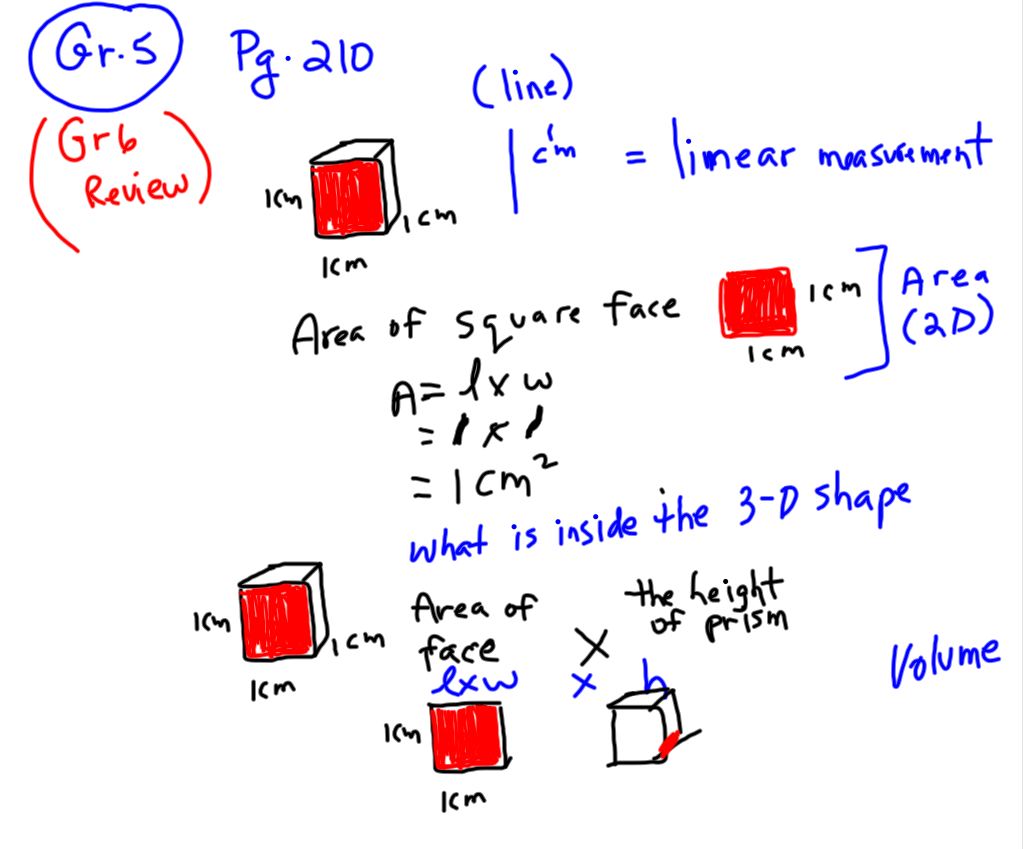 Gr.5
Pg. 210
(line)
(Gr6
Review)
1cm
1cm
1cm
1cm = linear measurement
Area of square face
1cm
1cm
Area
(2D)
A = l x w
= 1 x 1
= 1 cm²
what is inside the 3-D shape
1cm
1cm
1cm
Area of
face
X
the height
of prism
l x w x h
Volume
1cm
1cm